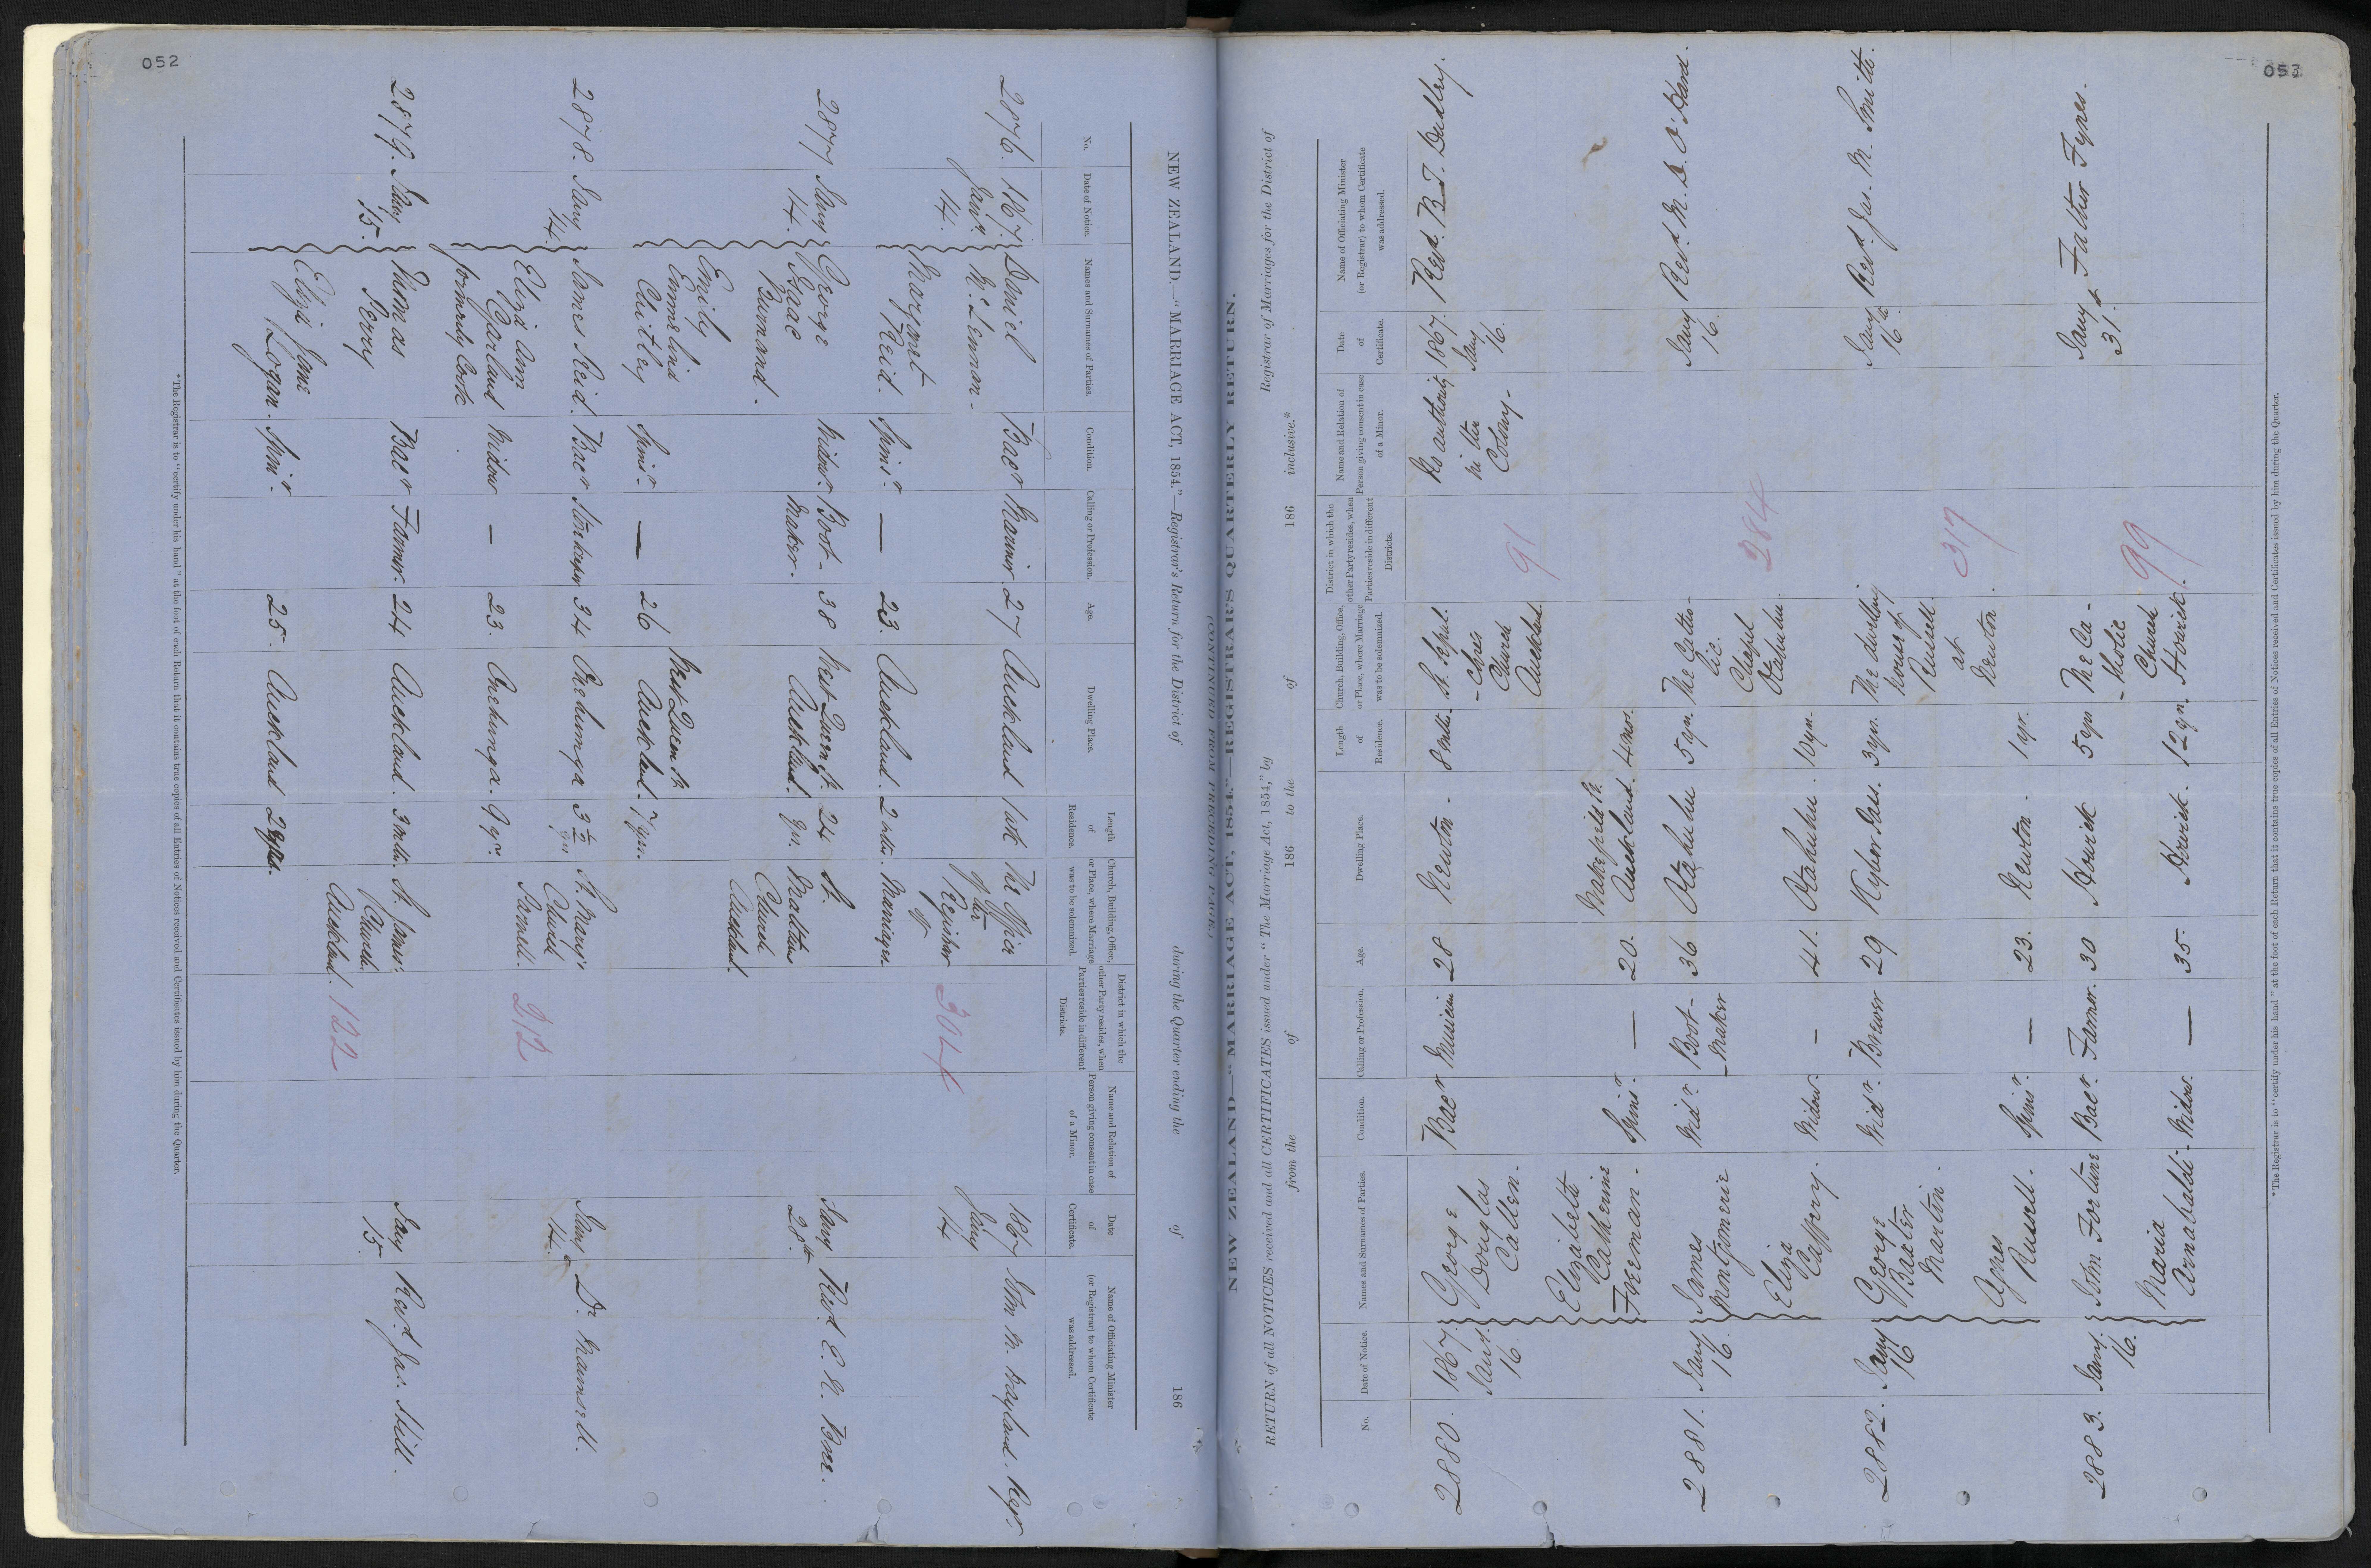 052
NEW ZEALAND.—"MARRIAGE ACT, 1854."—Registrar's Return for the District of during the Quarter ending the of 186
No.
Date of Notice.
Names and Surnames of Parties.
Condition.
Calling or Profession.
Age.
Dwelling Place.
Length of Residence.
Church, Building, Office, or Place, where Marriage was to be solemnized.
District in which the other Party resides, when Parties reside in different Districts.
Name and Relation of Person giving consent in case of a Minor.
Date of Certificate.
Name of Officiating Minister (or Registrar) to whom Certificate was addressed.
2876. 1867. Daniel Bacr Mariner 27 Auckland 1 wk The Office 1867
Jany. McLennon. of the Jany
14. Registrar 14
Margaret Spinr — 23. Auckland. 2 mths. of
Reid. Marriages.
2877 Jany George Widowr. Boot- 38 West Queen St. 24 St. Jany Revd.
14. Isaac Maker. Auckland yrs. Matthews 28th
Burnand. Church
Emily Spinr. — 26 West Queen St Auckland.
Emmelina Auckland. 7 yrs.
Chitley
2878. Jany James Reid. Bacr Storekeeper 34 Onehunga 3½ yrs St. Mary's Jany Dr Maunsell.
14. Church 14.
Eliza Ann Widow — 23. Onehunga. 9 yrs. Parnell.
Garland
formerly Cooke
2879. Jany Thomas Bacr Farmer. 24 Auckland. 3 mths. St. James' Jany Revd Jas. Hill.
15. Perry Church. 15.
Eliza Jane Spinr. 25. Auckland Auckland.
Logan.
304
212
122
*The Registrar is to "certify under his hand" at the foot of each Return that it contains true copies of all Entries of Notices received and Certificates issued by him during the Quarter.
053
NEW ZEALAND—"MARRIAGE ACT, 1854"—REGISTRAR'S QUARTERLY RETURN.
(CONTINUED FROM PRECEDING PAGE.)
RETURN of all NOTICES received and all CERTIFICATES issued under "The Marriage Act, 1854," by Registrar of Marriages for the District of
from the of 186 to the of 186 inclusive.*
No.
Date of Notice.
Names and Surnames of Parties.
Condition.
Calling or Profession.
Age.
Dwelling Place.
Length of Residence.
Church, Building, Office, or Place, where Marriage was to be solemnized.
District in which the other Party resides, when Parties reside in different Districts.
Name and Relation of Person giving consent in case of a Minor.
Date of Certificate.
Name of Officiating Minister (or Registrar) to whom Certificate was addressed.
2880. 1867. George Bacr Musician 28 Newton- 8 mths. St. Sepul- No authority 1867. Revd. B.T. Dudley.
Jany. Douglas -chres in the Jany
16. Callen. Church Colony- 16.
Elizabeth Wakefield St. Auckland.
Catherine Spinr. — 20. Auckland. 4 mos.
Freeman.
2881. Jany James Widr. Boot- 36 Otahuhu 5 yrs. The Catho- Jany Revd. M. D. O'Hara.
16. Montgomerie -maker lic. 16.
Eliza Widow. — 41. Otahuhu. 10 yrs. Chapel
Caffrey. Otahuhu.
2882. Jany George Widr. Brewer 29 Kyber Pass. 3 yrs. The dwelling Jany Revd. Jas. M. Smith.
16 Baxter house of 16th
Mantin. Russell.
Agnes Spinr. — 23. Newton. 1 yr. at
Russell. Newton.
2883. Jany. John Fortune Bacr. Farmer. 30 Howick 5 yrs The Ca- Jany Father Fynes.
16. -tholic 31st
Maria Widow. — 35. Howick. 12 yrs. Church
Arnabaldi- Howick.
91
284
317
99
*The Registrar is to "certify under his hand" at the foot of each Return that it contains true copies of all Entries of Notices received and Certificates issued by him during the Quarter.